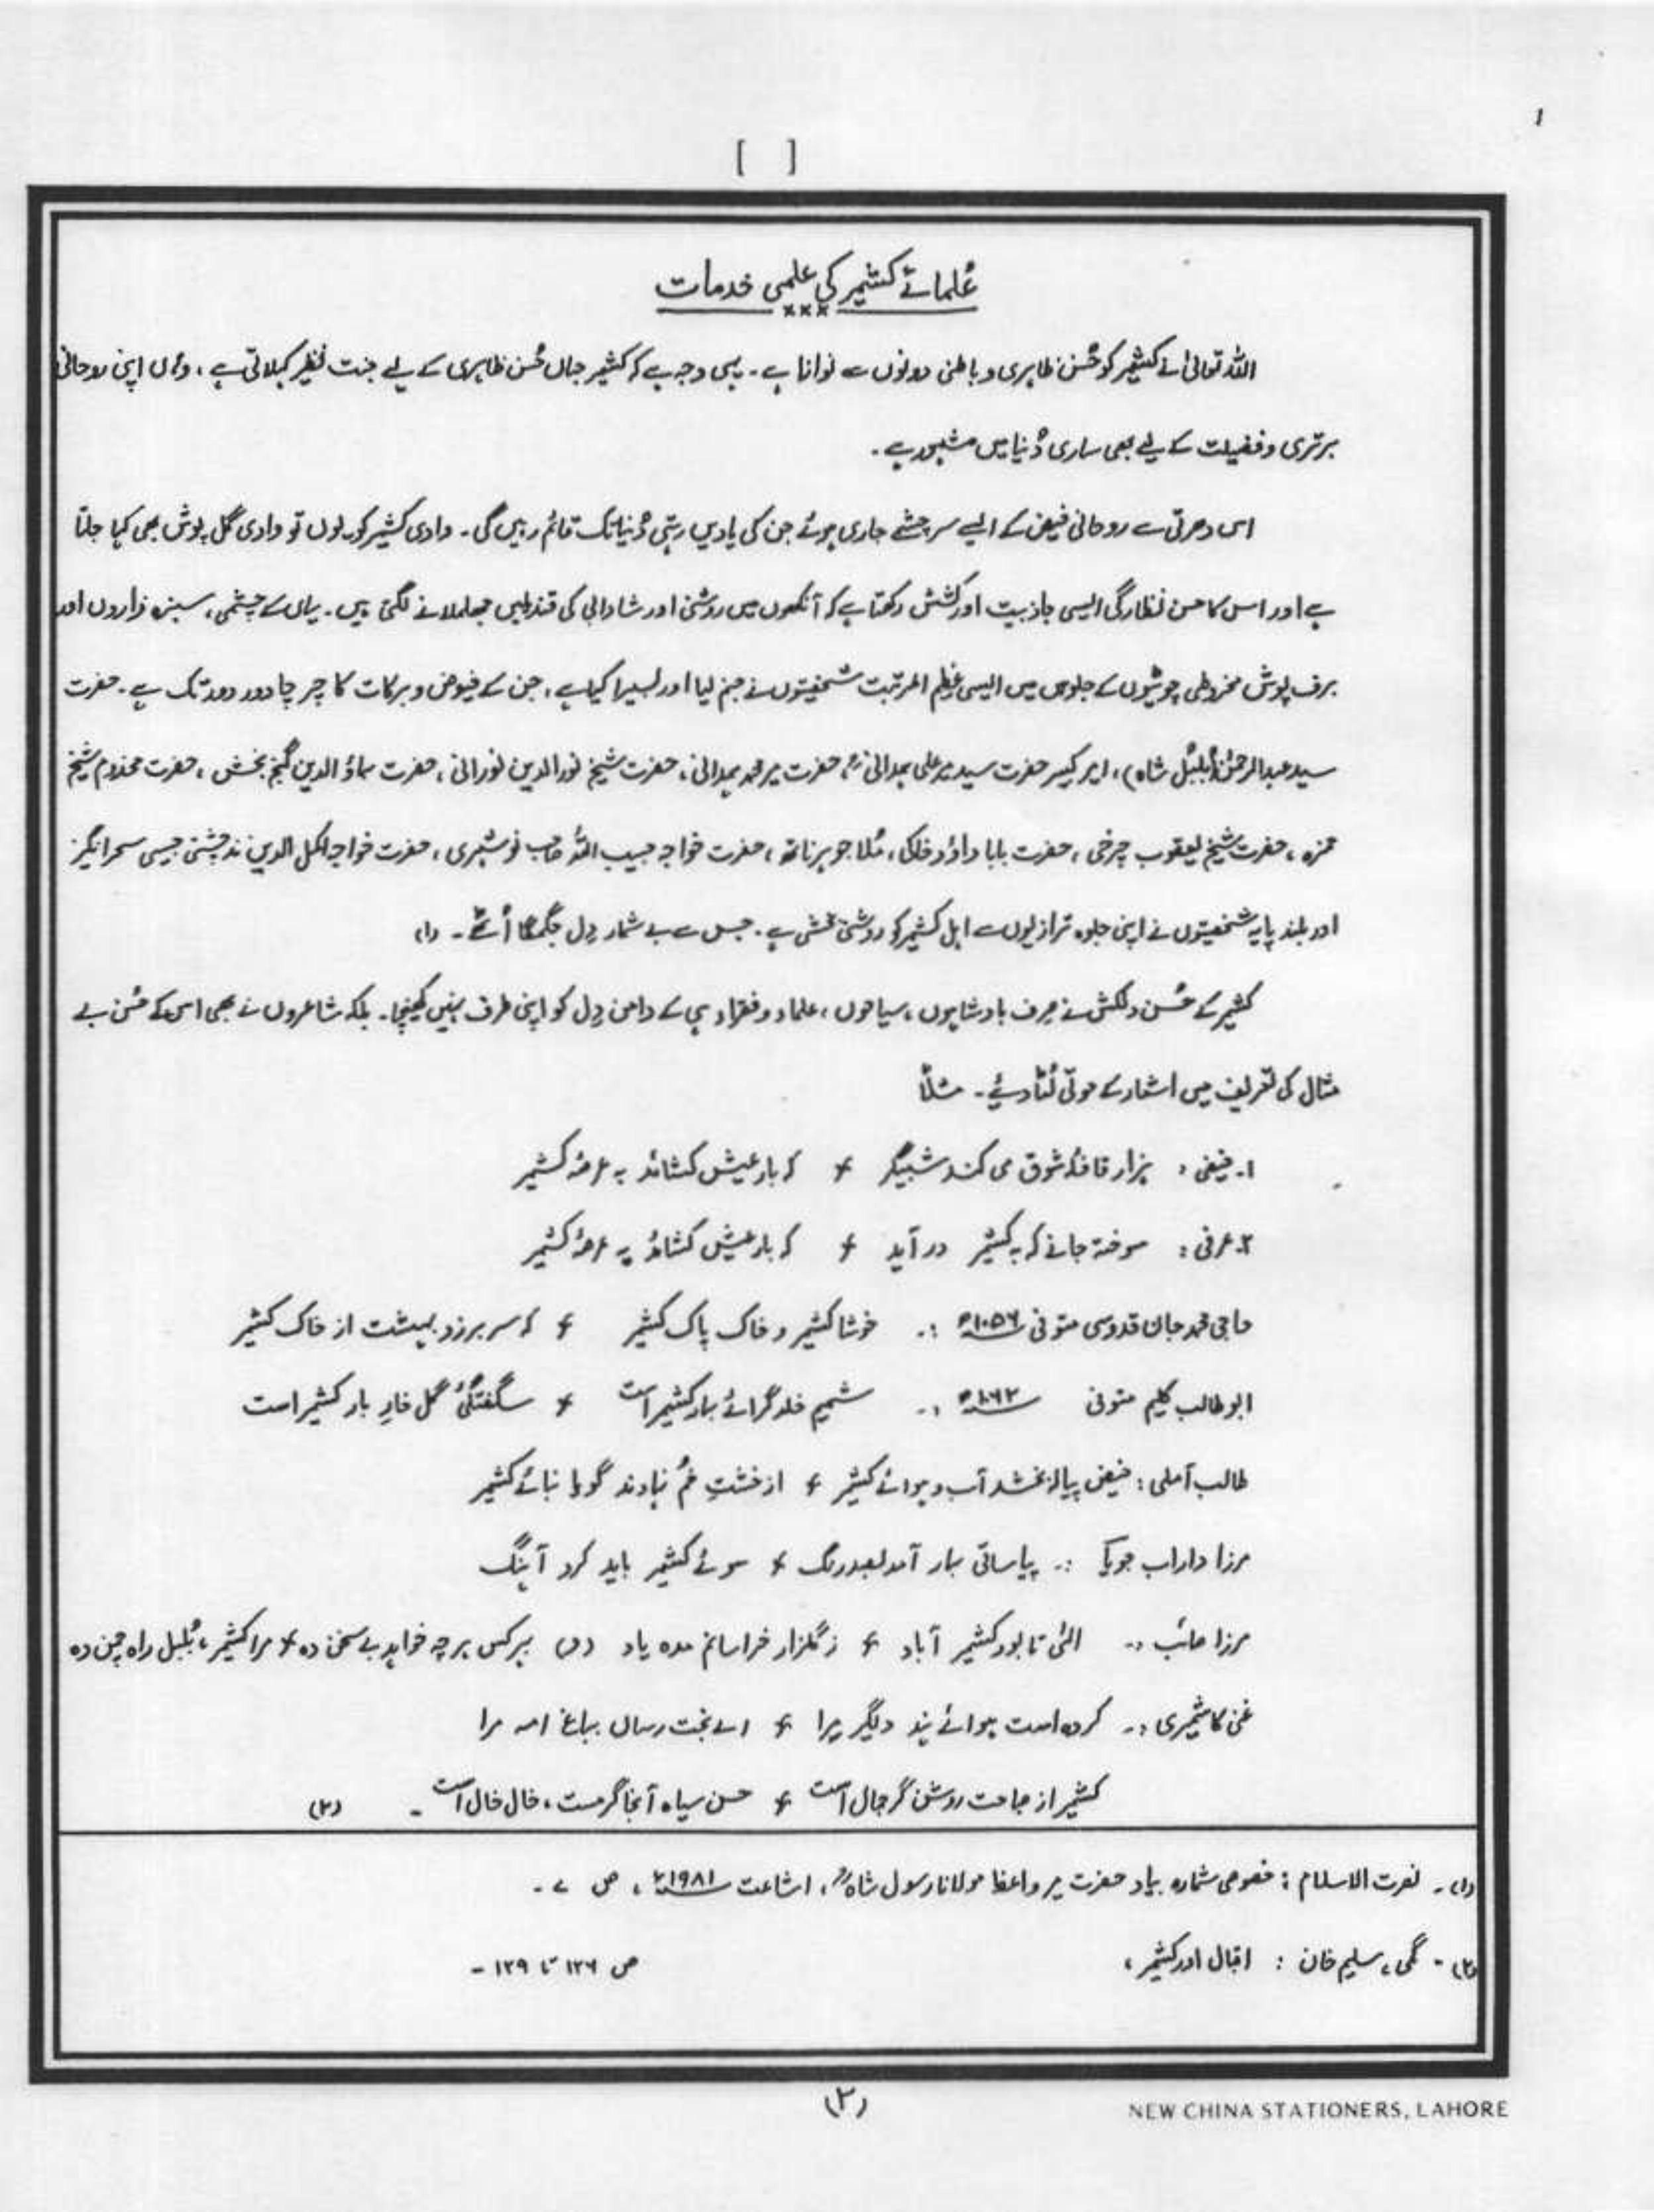 ۱
[ ]
عُلمائے کشمیر کی علمی خدمات
×××
اللہ تعالیٰ نے کشمیر کو حُسن ظاہری و باطنی دونوں سے نوازا ہے۔ یہی وجہ ہے کہ کشمیر جہاں حُسن ظاہری کے لیے جنت نظیر کہلاتی ہے، وہاں اپنی روحانی
برتری و فضیلت کے لیے بھی ساری دُنیا میں مشہور ہے۔
اس دھرتی سے روحانی فیض کے ایسے سرچشمے جاری ہوئے جن کی یادیں رہتی دُنیا تک قائم رہیں گی۔ وادی کشمیر کو یوں تو وادی گل پوش بھی کہا جاتا
ہے اور اس کا حسن نظارگی ایسی جاذبیت اور کشش رکھتا ہے کہ آنکھوں میں روشنی اور شادابی کی قندیلیں جھلملانے لگتی ہیں۔ یہاں کے چشمی، سبزہ زاروں اور
برف پوش مخروطی چوٹیوں کے جلوس میں ایسی عظیم المرتبت شخصیتوں نے جنم لیا اور بسیرا کیا ہے، جن کے فیوض و برکات کا چرچا دور دور تک ہے۔ حضرت
سید عبدالرحمٰن (بُلبُل شاہ)، امیر کبیر حضرت سید میر علی ہمدانیؒ، حضرت میر محمد ہمدانی، حضرت شیخ نور الدین نورانی، حضرت بہاؤ الدین گنج بخش، حضرت مخدوم شیخ
حمزہ، حضرت شیخ یعقوب چرخی، حضرت بابا داؤد خاکی، مُلا جوہر ناتھ، حضرت خواجہ حبیب اللہ حب نوشہری، حضرت خواجہ اکمل الدین بدخشی جیسی سحر انگیز
اور بلند پایہ شخصیتوں نے اپنی جلوہ ترازیوں سے اہل کشمیر کو روشنی بخشی ہے۔ جس سے بے شمار دِل جگمگا اُٹھے۔ (۱)
کشمیر کے حُسن دلکش نے صرف بادشاہوں، سیاحوں، علماء و فقراء ہی کے دامن دِل کو اپنی طرف نہیں کھینچا۔ بلکہ شاعروں نے بھی اس کے حُسن بے
مثال کی تعریف میں اشعار کے موتی لُٹا دیئے۔ مثلاً
۱۔ فیضی: ہزار قافلۂ شوق می کند شبگیر ٭ کہ بار عیش کشائد بہ عرصۂ کشمیر
۲۔ عرفی: سوختہ جانے کہ بہ کشمیر در آید ٭ کہ بار عیش کشائد بہ عرصۂ کشمیر
حاجی محمد جان قدوسی متوفی ۱۰۵۶ھ :۔ خوشا کشمیر و خاک پاک کشمیر ٭ کہ سر برزد بہشت از خاک کشمیر
ابو طالب کلیم متوفی ۱۰۶۲ھ :۔ شمیم خلد گرائے بہار کشمیر است ٭ شگفتگئ گل خارِ بہار کشمیر است
طالب آملی: فیض پیالہ بخشد آب و ہوائے کشمیر ٭ از خشتِ خُم نہادند گویا بنائے کشمیر
مرزا داراب جویا :۔ بیا ساقی بہار آمد بصد رنگ ٭ سوئے کشمیر باید کرد آہنگ
مرزا صائب :۔ الٰہی تا بود کشمیر آباد ٭ ز گلزار خراسانم مدہ یاد بہرکس ہرچہ خواہد بے سخن دہ ٭ مرا کشمیر، بُلبل راہ چمن دہ
غنی کاشمیری :۔ کردہ است ہوائے ہند دلگیر مرا ٭ اے بخت رساں بباغ مرا
کشمیر از صباحت روشن گر جمال است ٭ حسن سیاہ آنجا گرمست، خال خال است۔ (۲)
(۱)۔ نصرت الاسلام: خصوصی شمارہ بیاد حضرت میر واعظ مولانا رسول شاہؒ، اشاعت ۱۹۸۱ء، ص ۷۔
(۲)۔ گمی، سلیم خان: اقبال اور کشمیر، ص ۱۲۶ تا ۱۲۹۔
(۲)
NEW CHINA STATIONERS, LAHORE